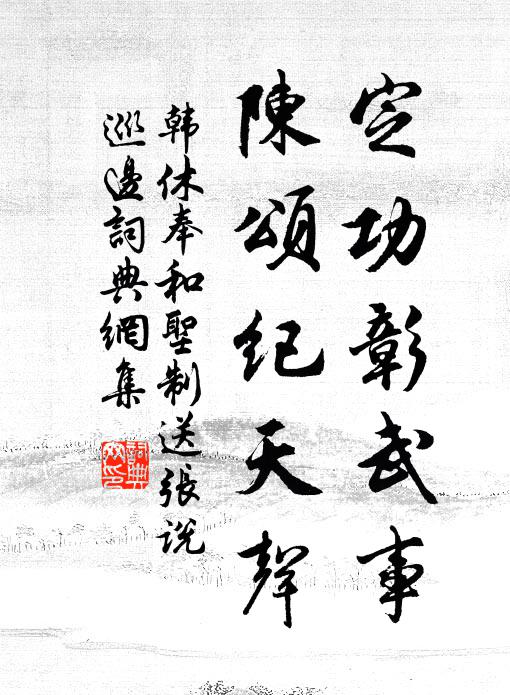 定功彰武事
陳頌紀天聲
韩休奉和聖制送張说
巡邊詞典網集
詞典网印